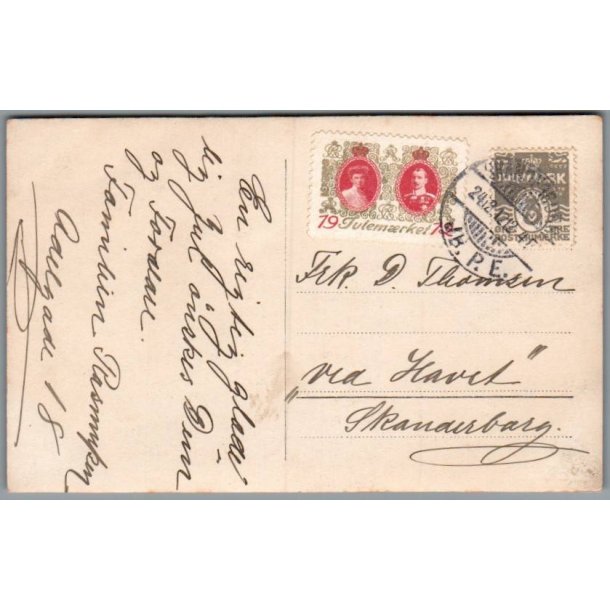 En rigtig glædelig Jul ønskes Dem
og Forældre.
Familien Rasmussen
Aalegade 18
19 Julemærket 12
DANMARK
POSTFRIMÆRKE
24.12.12
JB. P. E.
Frk. D. Thomsen
„ved Havet"
Skanderborg.